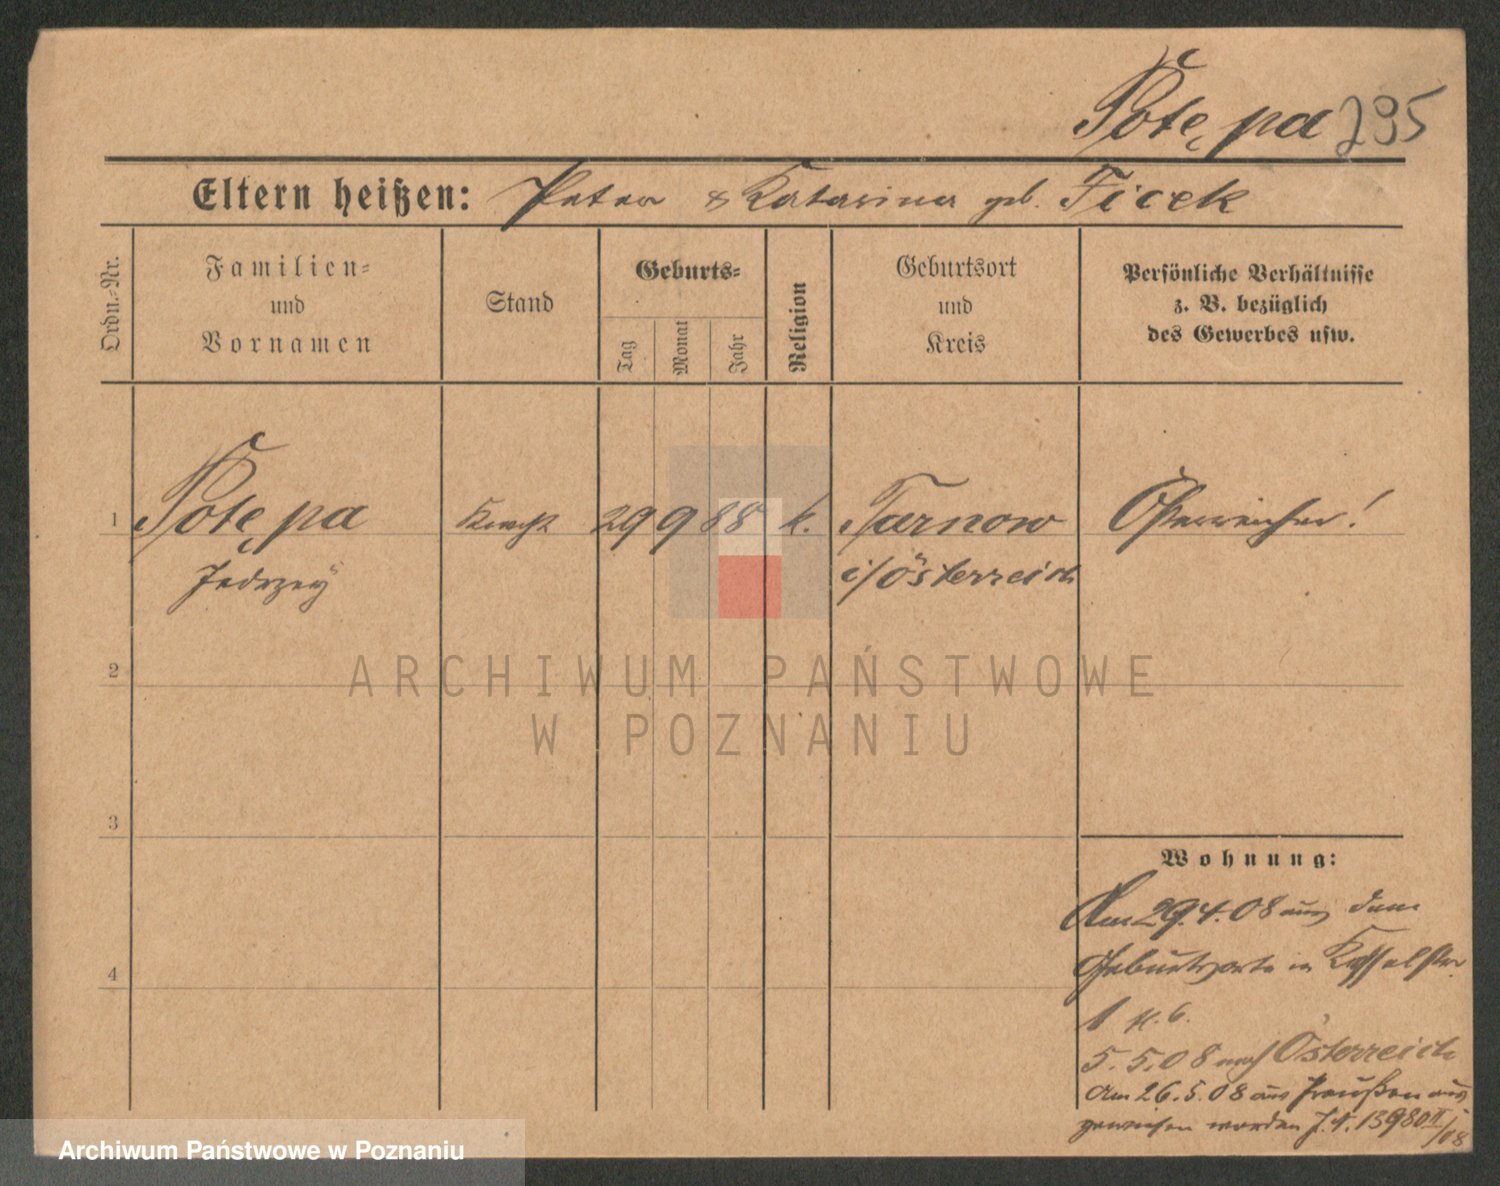 Potępa 295
Eltern heißen: Peter & Katarina geb. Ficek
Ordn.-Nr.
Familien-
und
Vornamen
Stand
Geburts-
Tag
Monat
Jahr
Religion
Geburtsort
und
Kreis
Persönliche Verhältnisse
z. B. bezüglich
des Gewerbes usw.
1 Potępa Knecht 29 9 88 k. Tarnow Österreicher!
Jedrzey i/Österreich
2
ARCHIWUM PAŃSTWOWE
W POZNANIU
3
Wohnung:
Am 29.4.08 aus dem
Geburtsorte in
4
1 H. b.
5.5.08 nach Österreich
Am 26.5.08 aus Preußen aus
gewiesen worden J.N. 13980 II/08
Archiwum Państwowe w Poznaniu